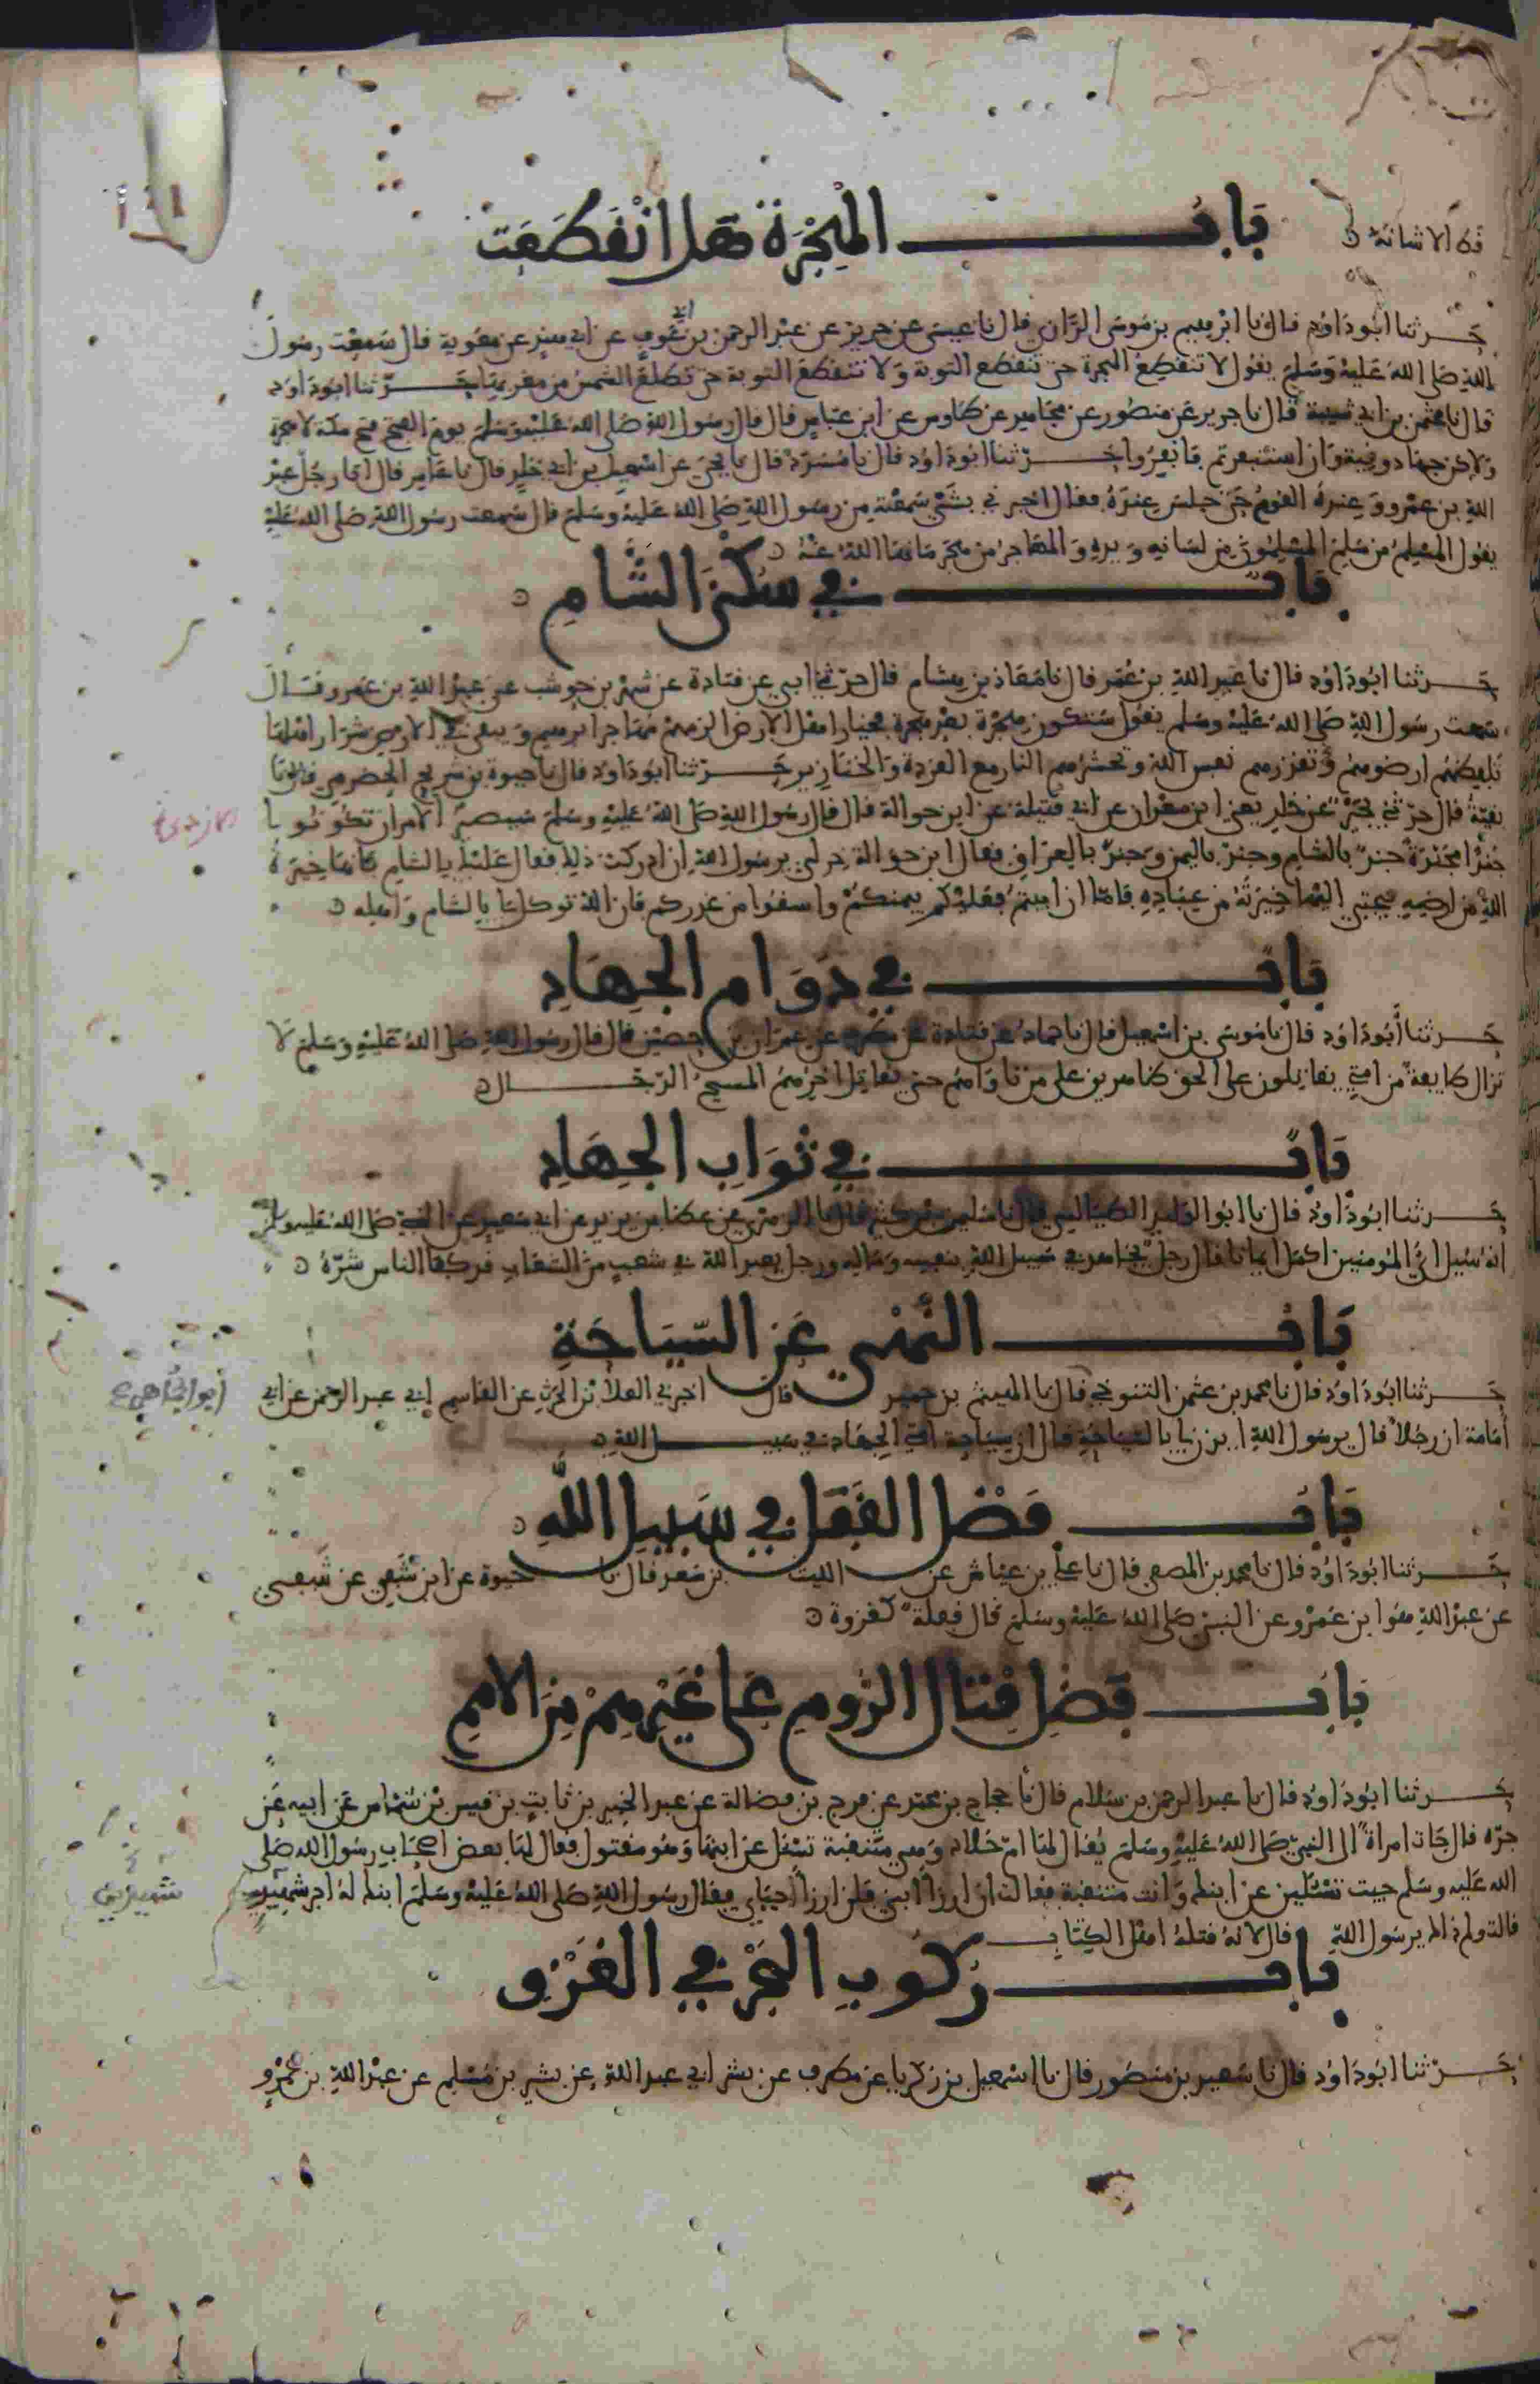 بَابُ الهِجْرَةِ هَل انْقَطَعَت
حَدثنا ابُو دَاوُد قال نا ابْرهيم بن مُوسى الرَّازي قال نا عيسى عن حريز عن عبد الرحمن بن ابي عَوفٍ عن ابي هندٍ عن معٰوية قال سَمِعْت رسُولَ
اللهِ صَلى اللهُ عَليْهِ وَسَلم يقُول لا تنقطِعُ الهجرة حتى تنقطع التوبة وَلا تنقطعُ التوبة حتى تطلعَ الشمسُ من مغربها حَدّثنا ابُو دَاوُد
قال نا عثمٰن بن ابي شيبة قال نا جرير عَن منصُور عن مجاهِد عن طاوس عن ابن عبّاسٍ قال قال رسُول اللهِ صَلى الله عَليْه وسَلم يوم الفتح فتح مكة لا هجرة
وَلاكن جهَاد ونية وَان استُنفرتم فانفِرُوا حَدّثنا ابُو دَاوُد قال نا مُسَدّدٌ قال نا يحيى عن اسْمٰعيل بن ابي خٰلدٍ قال نا عَامِر قال اتى رجُلٌ عبْد
اللهِ بن عمْرو وَعِندهُ القومُ حَتى جلسَ عِندَهُ فقال اخبرني بشَىْءٍ سَمعْتهُ مِن رسُول اللهِ صَلى اللهُ عَليْهِ وسَلم قال سَمعت رسُول اللهِ صَلى الله عَليْهِ
يقول المُسْلِمُ مَن سَلِمَ المسْلمُونَ مِن لسَانهِ وَيدهِ وَالمهَاجرُ مَن هجَرَ مَا نهَى اللهُ عَنْهُ
بَابٌ في سُكْنَى الشَّامِ
حَدثنا ابُو دَاوُد قال نا عبَيد اللهِ بن عُمَر قال نا مُعَاذ بن هِشام قال حدّثني ابي عن قتادة عن شهْر بن حَوشب عن عبدِ اللهِ بن عَمرو قال
سمعت رسُول اللهِ صَلى اللهُ عَليْهِ وسَلم يقول سَتكون هِجرَة بعْد هجرة فخيار اهْل الارْض الزمهمْ مهَاجر ابرهيم وَيبقى في الارض شرَار اهْلهَا
تلفِظهُم ارضوهُمْ وَتقذرهم نفس اللهِ وتحشرُهم النار مع القردة وَالخنازير حَدّثنا ابُو دَاوُد قال نا حيوة بن شريح الحضرمي قال نا
بقيّةُ قال حدّثني بحيرٌ عن خٰلد يعني ابن معْدان عن ابي قتيلة عن ابن حوالة قال قال رسُول اللهِ صَلى اللهُ عليْهِ وسَلم سَيصيرُ الامر ان تكُونُوا
جُندًا مجنّدةً جندٌ بالشام وجندٌ باليمن وَجندٌ بالعراق فقال ابن حوالة خِر لي يرسُول اللهِ ان ادركت ذلك فقال عَليْكَ بالشام فانها خِيَرَةُ
اللهِ من ارضِهِ يجتبي اليهَا خِيرَتهُ من عِبَادِهِ فامّا ان ابيتمْ فعَليْكُم بيمنكُمْ واسقُوا من غدركم فان اللهَ توكل لي بالشام وَاهلِه
بَابٌ في دَوَامِ الجِهَادِ
حَدثنا أبُو دَاوُد قال نا مُوسى بن اسْمٰعيل قال نا حماد عن قتادة عن مُطَرِّف عن عمْران بن حصيْن قال قال رسُول اللهِ صَلى اللهُ عَليْهِ وسَلم لا
تزال طايفة من امتي يقاتِلُون على الحق ظاهرين على من ناوَاهُم حتى يقاتِل اخِرُهمُ المسيحَ الدّجّال
بَابٌ في ثَوَابِ الجِهَادِ
حَدثنا ابُو دَاوُد قال نا ابُو الوليد الطيَالسي قال نا سُليمٰن بن كثير قال نا الزهري عن عطا بن يزيد عن ابي سَعيدٍ عن النبيّ صَلى الله عَليه وسلم
انهُ سُيل ايّ المُومنين اكمَل ايمانا قال رجلٌ يجَاهد في سَبيل اللهِ بنفسِه وَمَالِه ورجل يعبد اللهَ في شعبٍ منَ الشعَاب قد كفى الناس شَرّهُ
بَابُ النَّهْيِ عَن السِّيَاحَةِ
حَدثنا ابُو دَاوُد قال نا محمد بن عثمٰن التنوخي قال نا الهيثم بن حميد قال اخبرني العلا بن الحٰرثِ عن القاسِم ابي عبد الرحمن عن ابي
أُمَامة ان رجُلا قال يرسُول اللهِ ايذن لي بالسّيَاحَةِ قال ان سِيَاحة امّتي الجهَاد في سَبيل اللهِ
أبو الجُماهر
بَابُ فَضْلِ القَفَلِ في سَبِيلِ اللهِ
حَدثنا ابُو دَاوُد قال نا محمد بن المصفى قال نا علي بن عيّاش عن الليث بن سَعْد قال نا حيوة عن ابن شُفَي عن شُفَي
عن عبْد اللهِ هُوَ ابن عَمْرو عن النبيّ صَلى اللهُ عَليْهِ وسَلم قال قفلَةٌ كغزوة
بَابُ فَضْلِ قِتَالِ الرُّومِ عَلَى غَيْرِهِمْ مِنَ الامَمِ
حَدثنا ابُو دَاوُد قال نا عبد الرحمن بن سَلام قال نا حجاج بن محمد عن فرج بن فضالة عن عبد الخبير بن ثابتِ بن قيس بْن شمّاس عَن ابيهِ عَن
جدّه قال جَات امراةٌ الى النبيّ صَلى اللهُ عَليْهِ وسَلم يُقال لهَا امّ خلاد وَهي متنقبة تسْئل عن ابنهَا وَهُو مَقتول فقال لهَا بعض اصحَاب رسُول الله صَلى
الله عَليْه وسَلم جيت تسْئلين عن ابنك وَانت متنقبة فقالت ان ارزَأ ابني فلن ارزَأ حيَاي فقال رسُول اللهِ صَلى اللهُ عَليْهِ وسَلم ابنك لهُ اجر شهيدين
شهيدين
قالت ولم ذاك يرسُول اللهِ قال لانهُ قتلهُ اهْل الكِتَاب
بَابُ رُكُوبِ البَحْرِ في الغَزْوِ
حَدثنا ابُو دَاوُد قال نا سَعيد بن منصُور قال نا اسْمٰعيل بن زكريا عن مطرف عن بشر ابي عبد اللهِ عن بشير بن مُسْلِم عن عبْد اللهِ بن عَمْرٍو